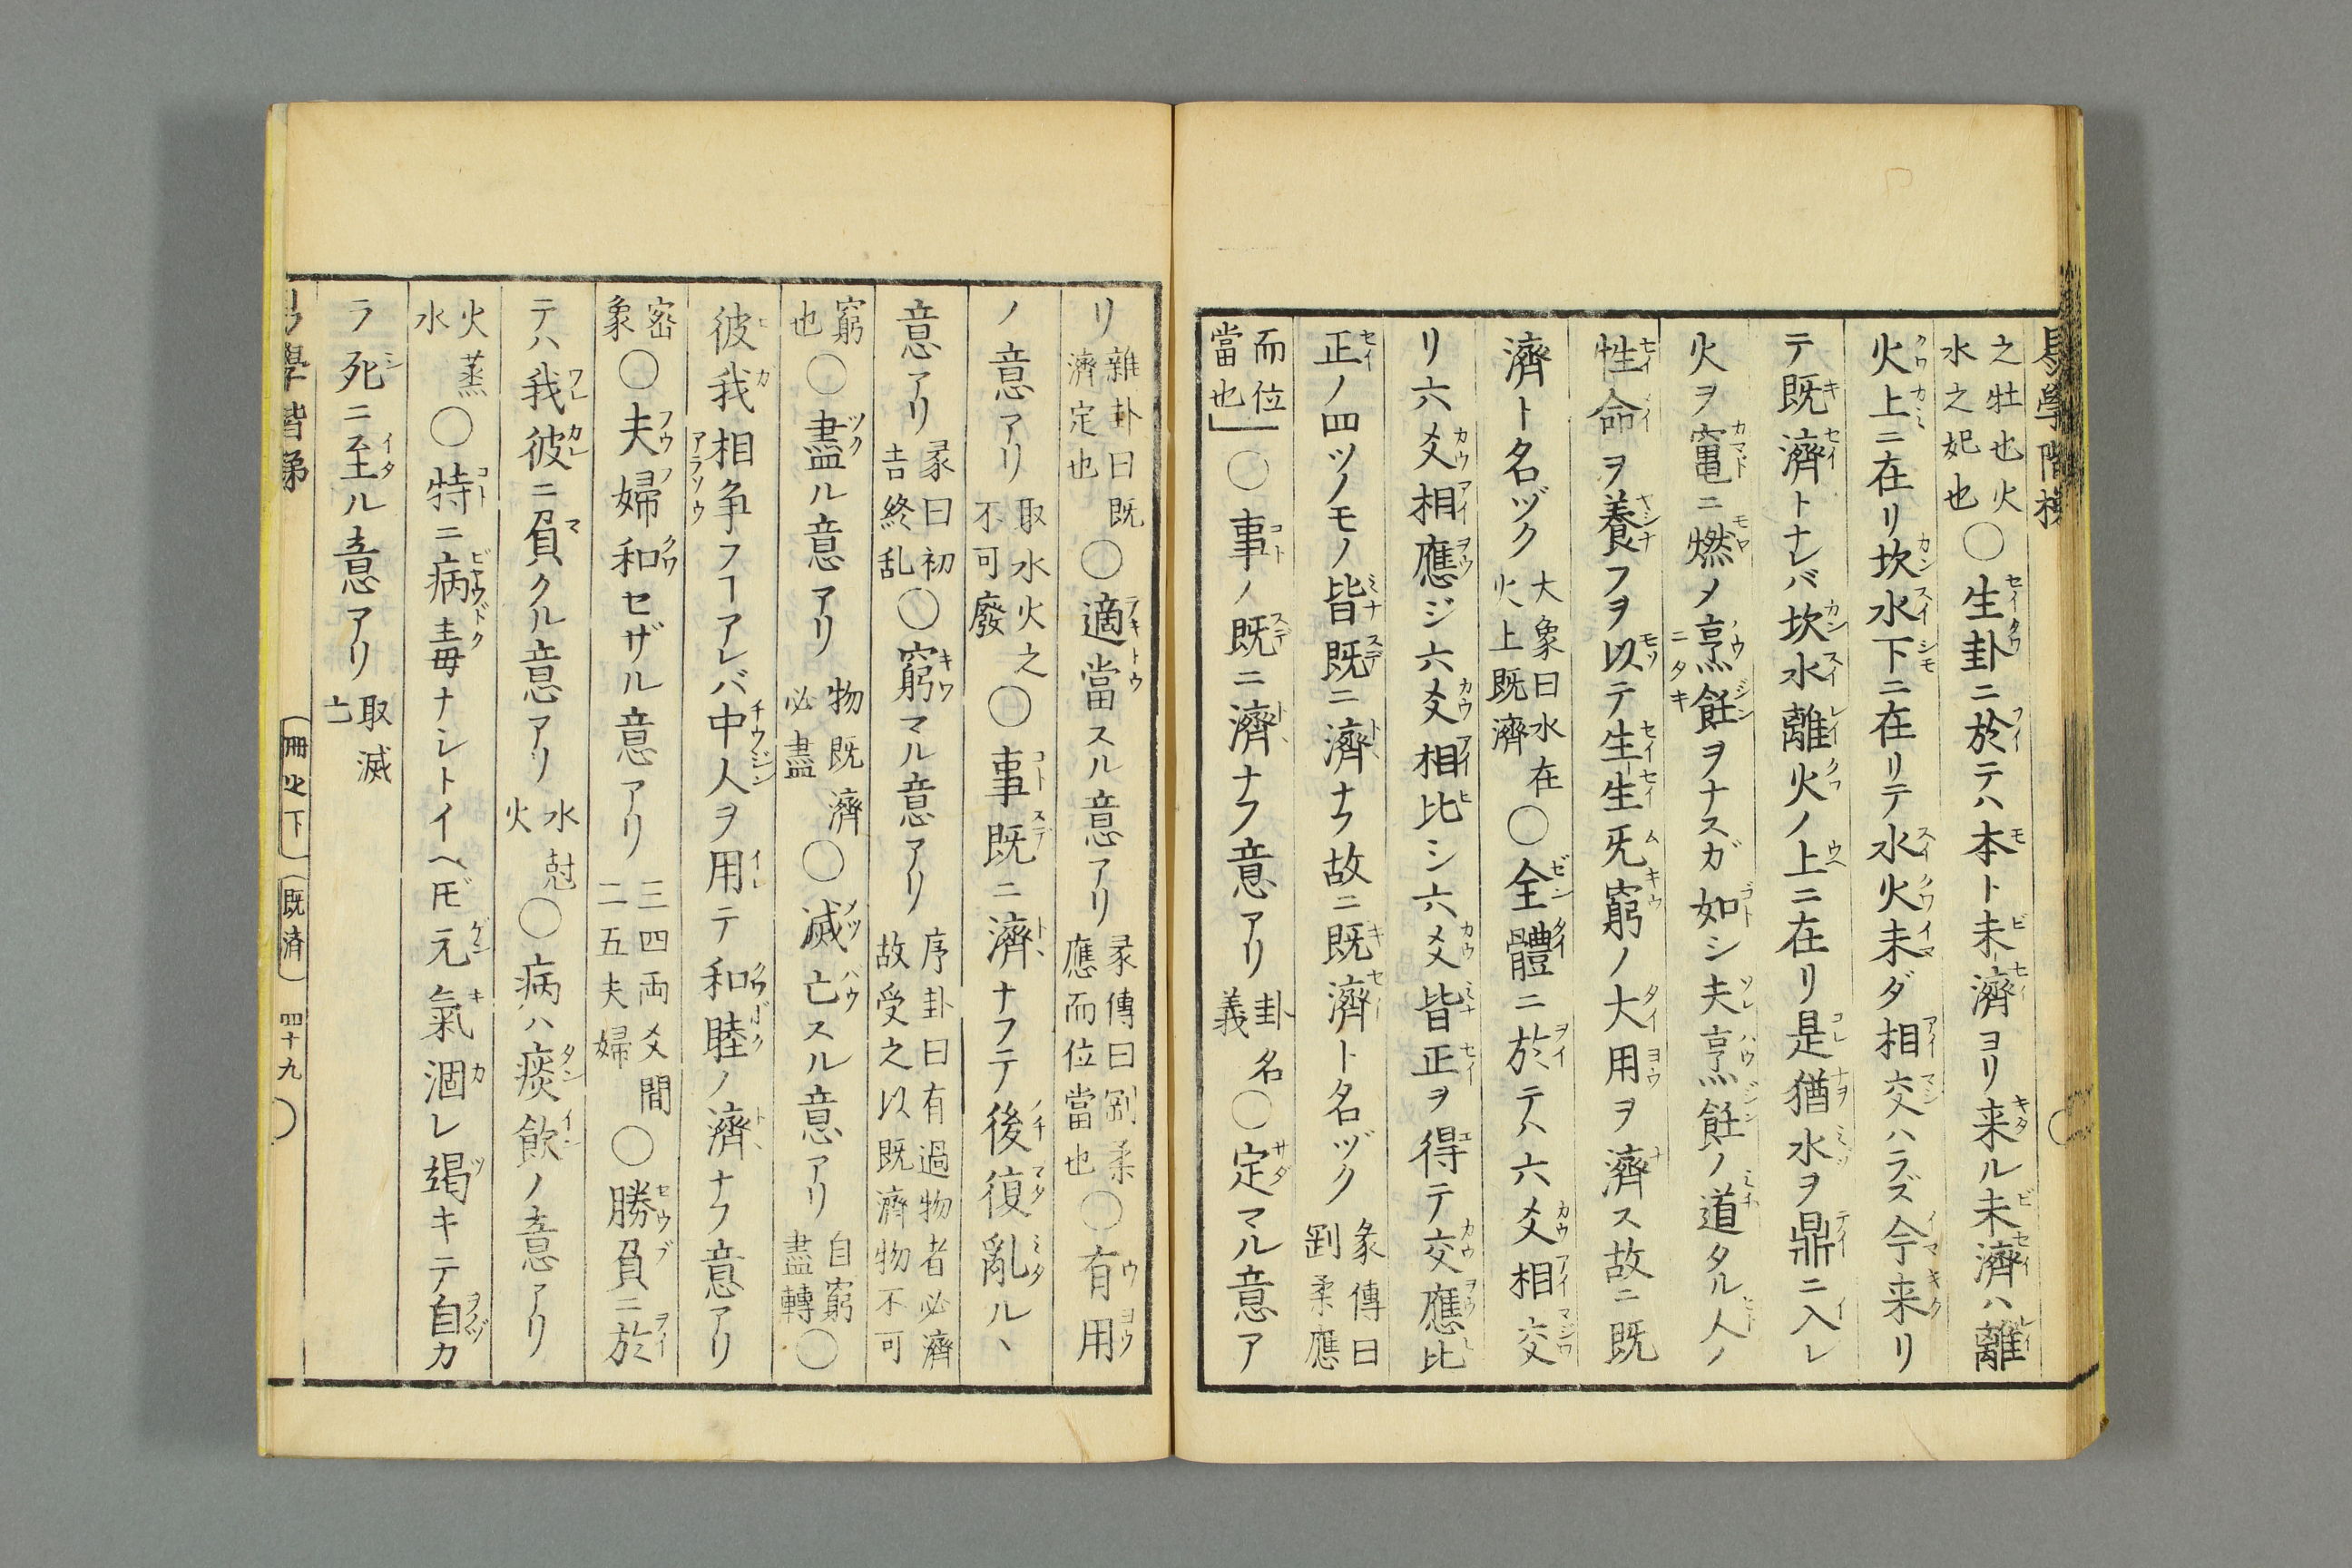 易學階梯
之牡也火
水之妃也
○生卦ニ於テハ本ト未濟ヨリ来ル未濟ハ離
火上ニ在リ坎水下ニ在リテ水火未ダ相交ハラズ今来リ
テ既濟トナレバ坎水離火ノ上ニ在リ是猶水ヲ鼎ニ入レ
火ヲ竃ニ燃メ烹飪ヲナスガ如シ夫烹飪ノ道タル人ノ
性命ヲ養フヲ以テ生生旡窮ノ大用ヲ濟ス故ニ既
濟ト名ヅク
大象曰水在
火上既濟
○全體ニ於テハ六爻相交
リ六爻相應ジ六爻相比シ六爻皆正ヲ得テ交應比
正ノ四ツノモノ皆既ニ濟ナフ故ニ既濟ト名ヅク
彖傳曰
剛柔應
而位
當也」
○事ノ既ニ濟ナフ意アリ
卦名
義
○定マル意ア
リ
雜卦曰既
濟定也
○適當スル意アリ
彖傳曰剛柔
應而位當也
○有用
ノ意アリ
取水火之
不可廢
○事既ニ濟ナフテ後復亂ルヽ
意アリ
彖曰初
吉終乱
○窮マル意アリ
序卦曰有過物者必濟
故受之以既濟物不可
窮
也
○盡ル意アリ
物既濟
必盡
○滅亡スル意アリ
自窮
盡轉
○
彼我相争フヿアレバ中人ヲ用テ和睦ノ濟ナフ意アリ
密
象
○夫婦和セザル意アリ
三四両爻間
二五夫婦
○勝負ニ於
テハ我彼ニ負クル意アリ
水尅
火
○病ハ痰飲ノ意アリ
火蒸
水
○特ニ病毒ナシトイヘ𪜈元氣涸レ竭キテ自カ
ラ死ニ至ル意アリ
取滅
亡
易學階梯
冊之下
既済
四十九